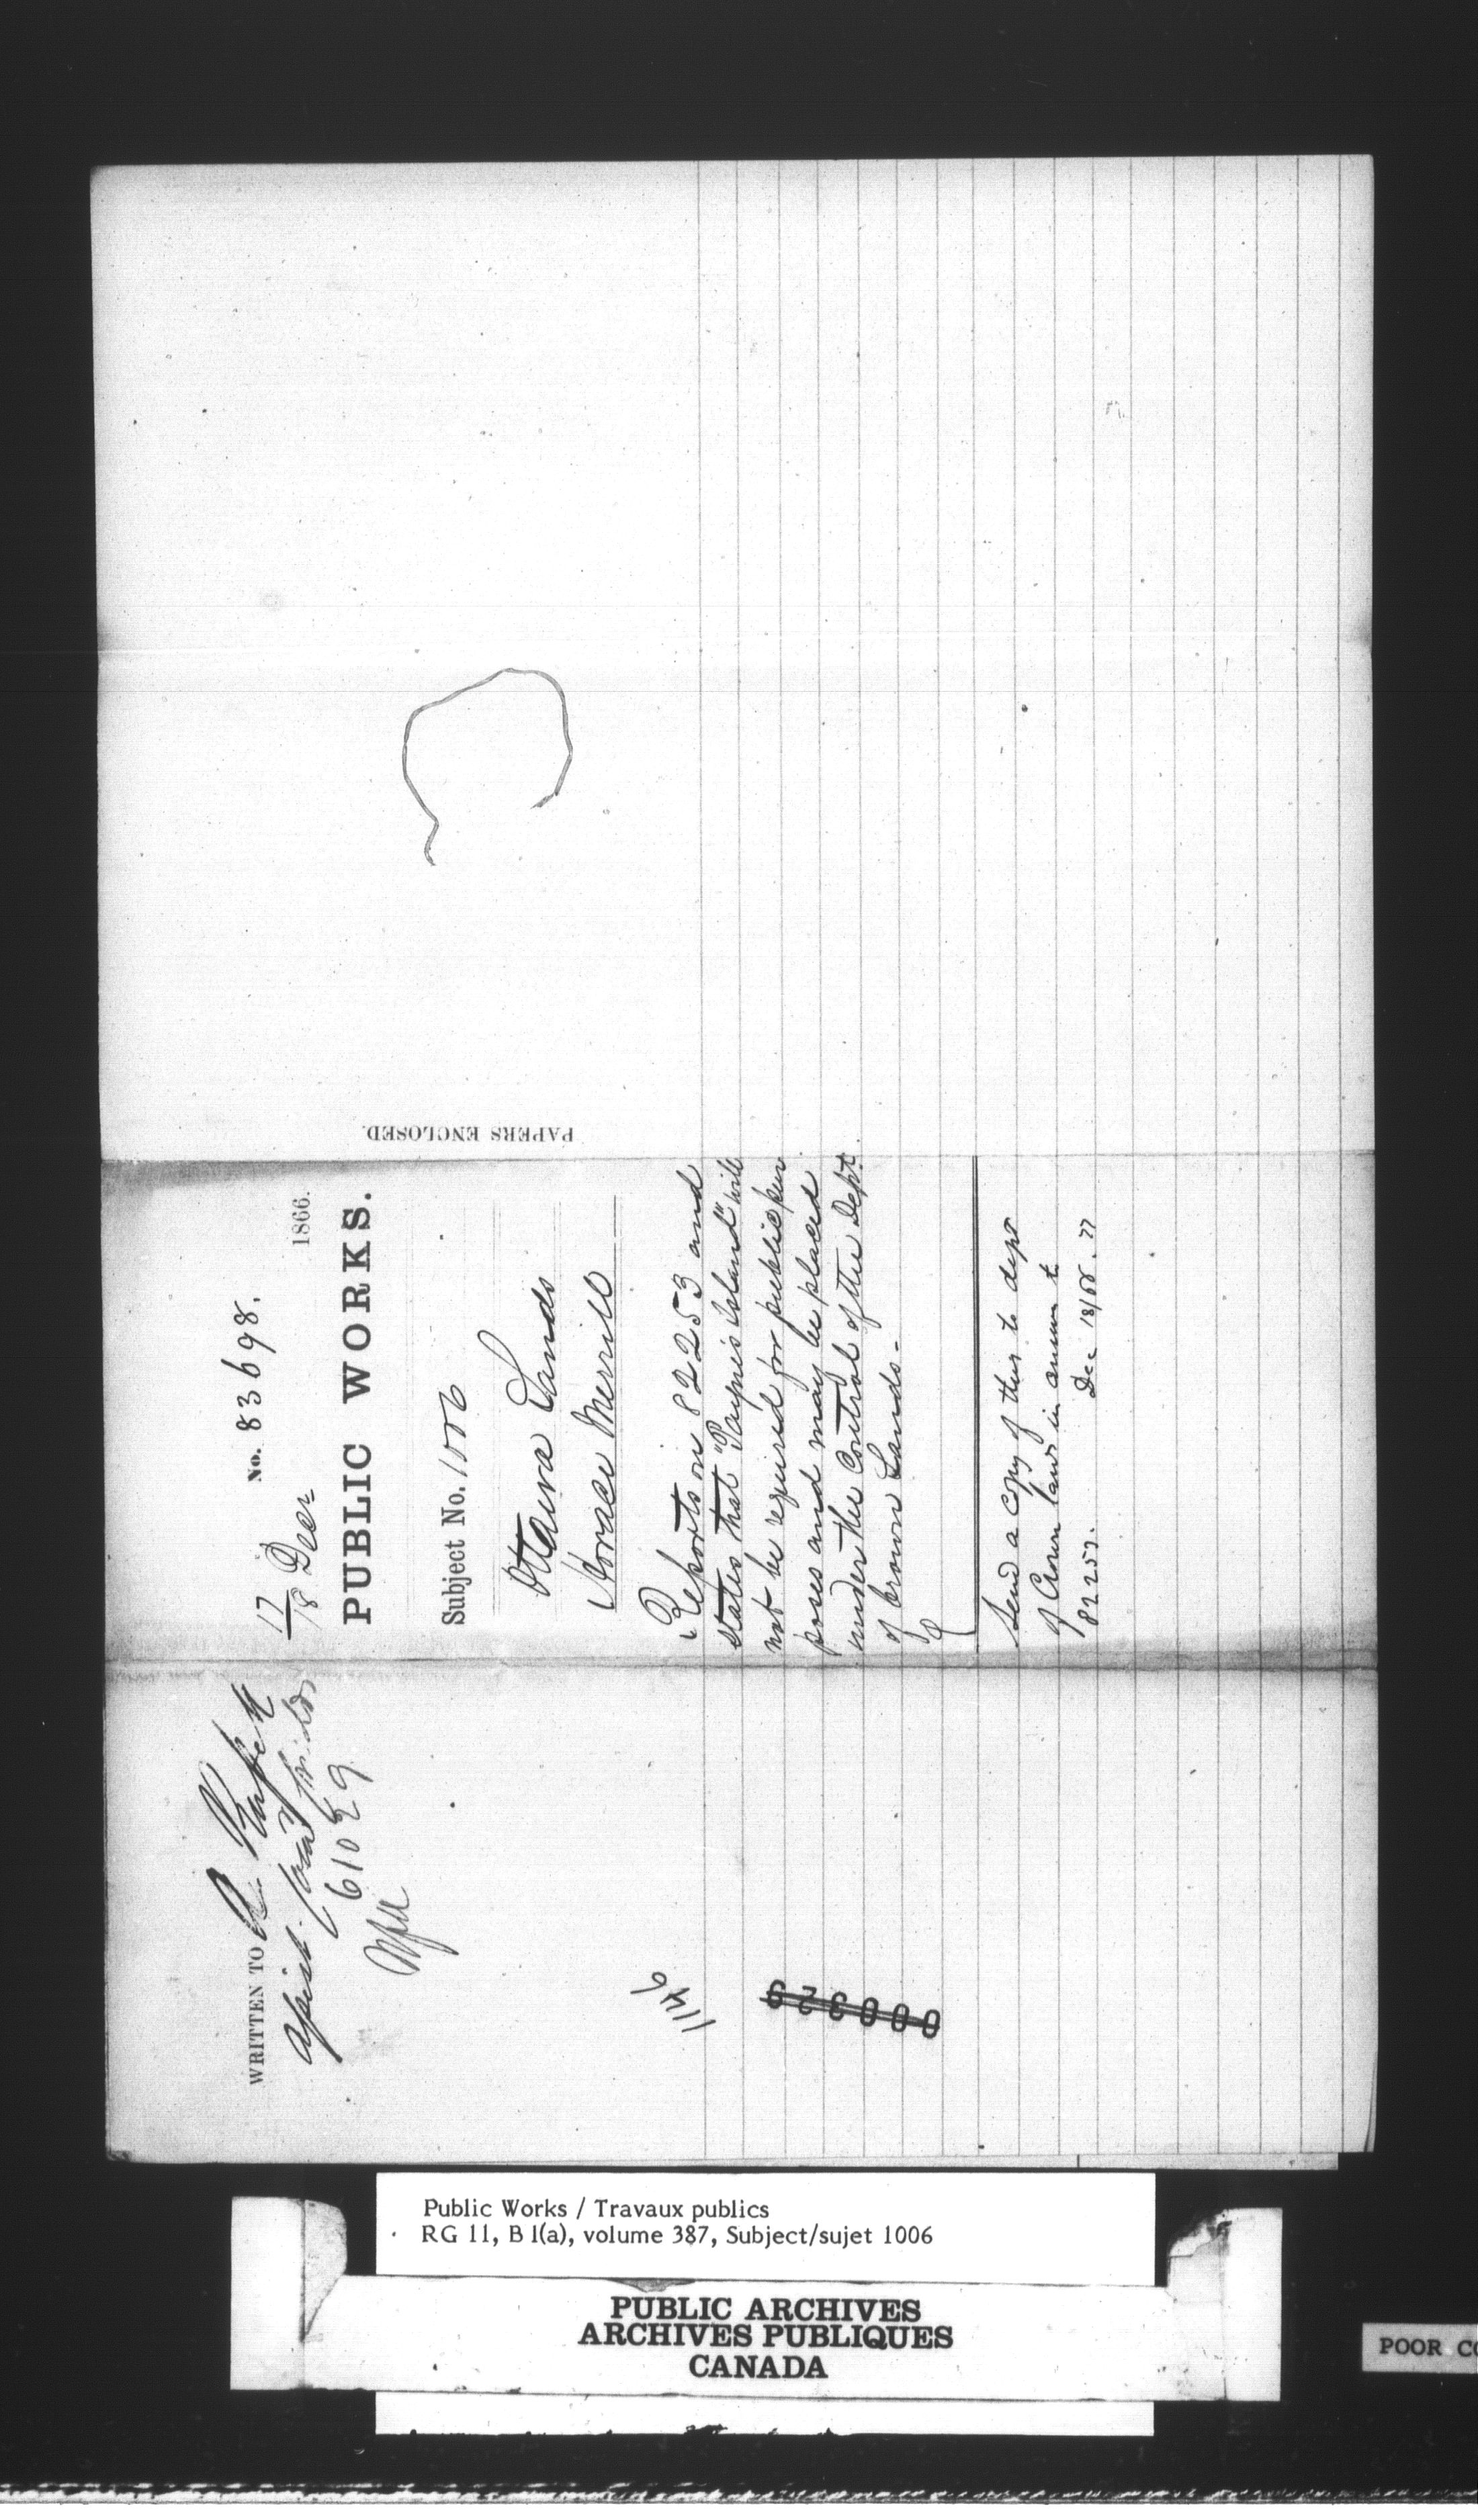 WRITTEN TO A. Russell
61029
1146
000329
No. 83698.
17/18 Decr 1866.
PUBLIC WORKS.
Subject No. 1006
Ottawa Lands
Horace Merrill
Reports on 82253 and
states that "Payne's Island" will
not be required for public pur
poses and may be placed
under the Control of the Dept.
of Crown Lands-
Send a copy of this to dept
of Crown lands in answer to
82253.
Dec 18/66.
PAPERS ENCLOSED.
Public Works / Travaux publics
RG 11, B 1(a), volume 387, Subject/sujet 1006
PUBLIC ARCHIVES
ARCHIVES PUBLIQUES
CANADA
POOR CO